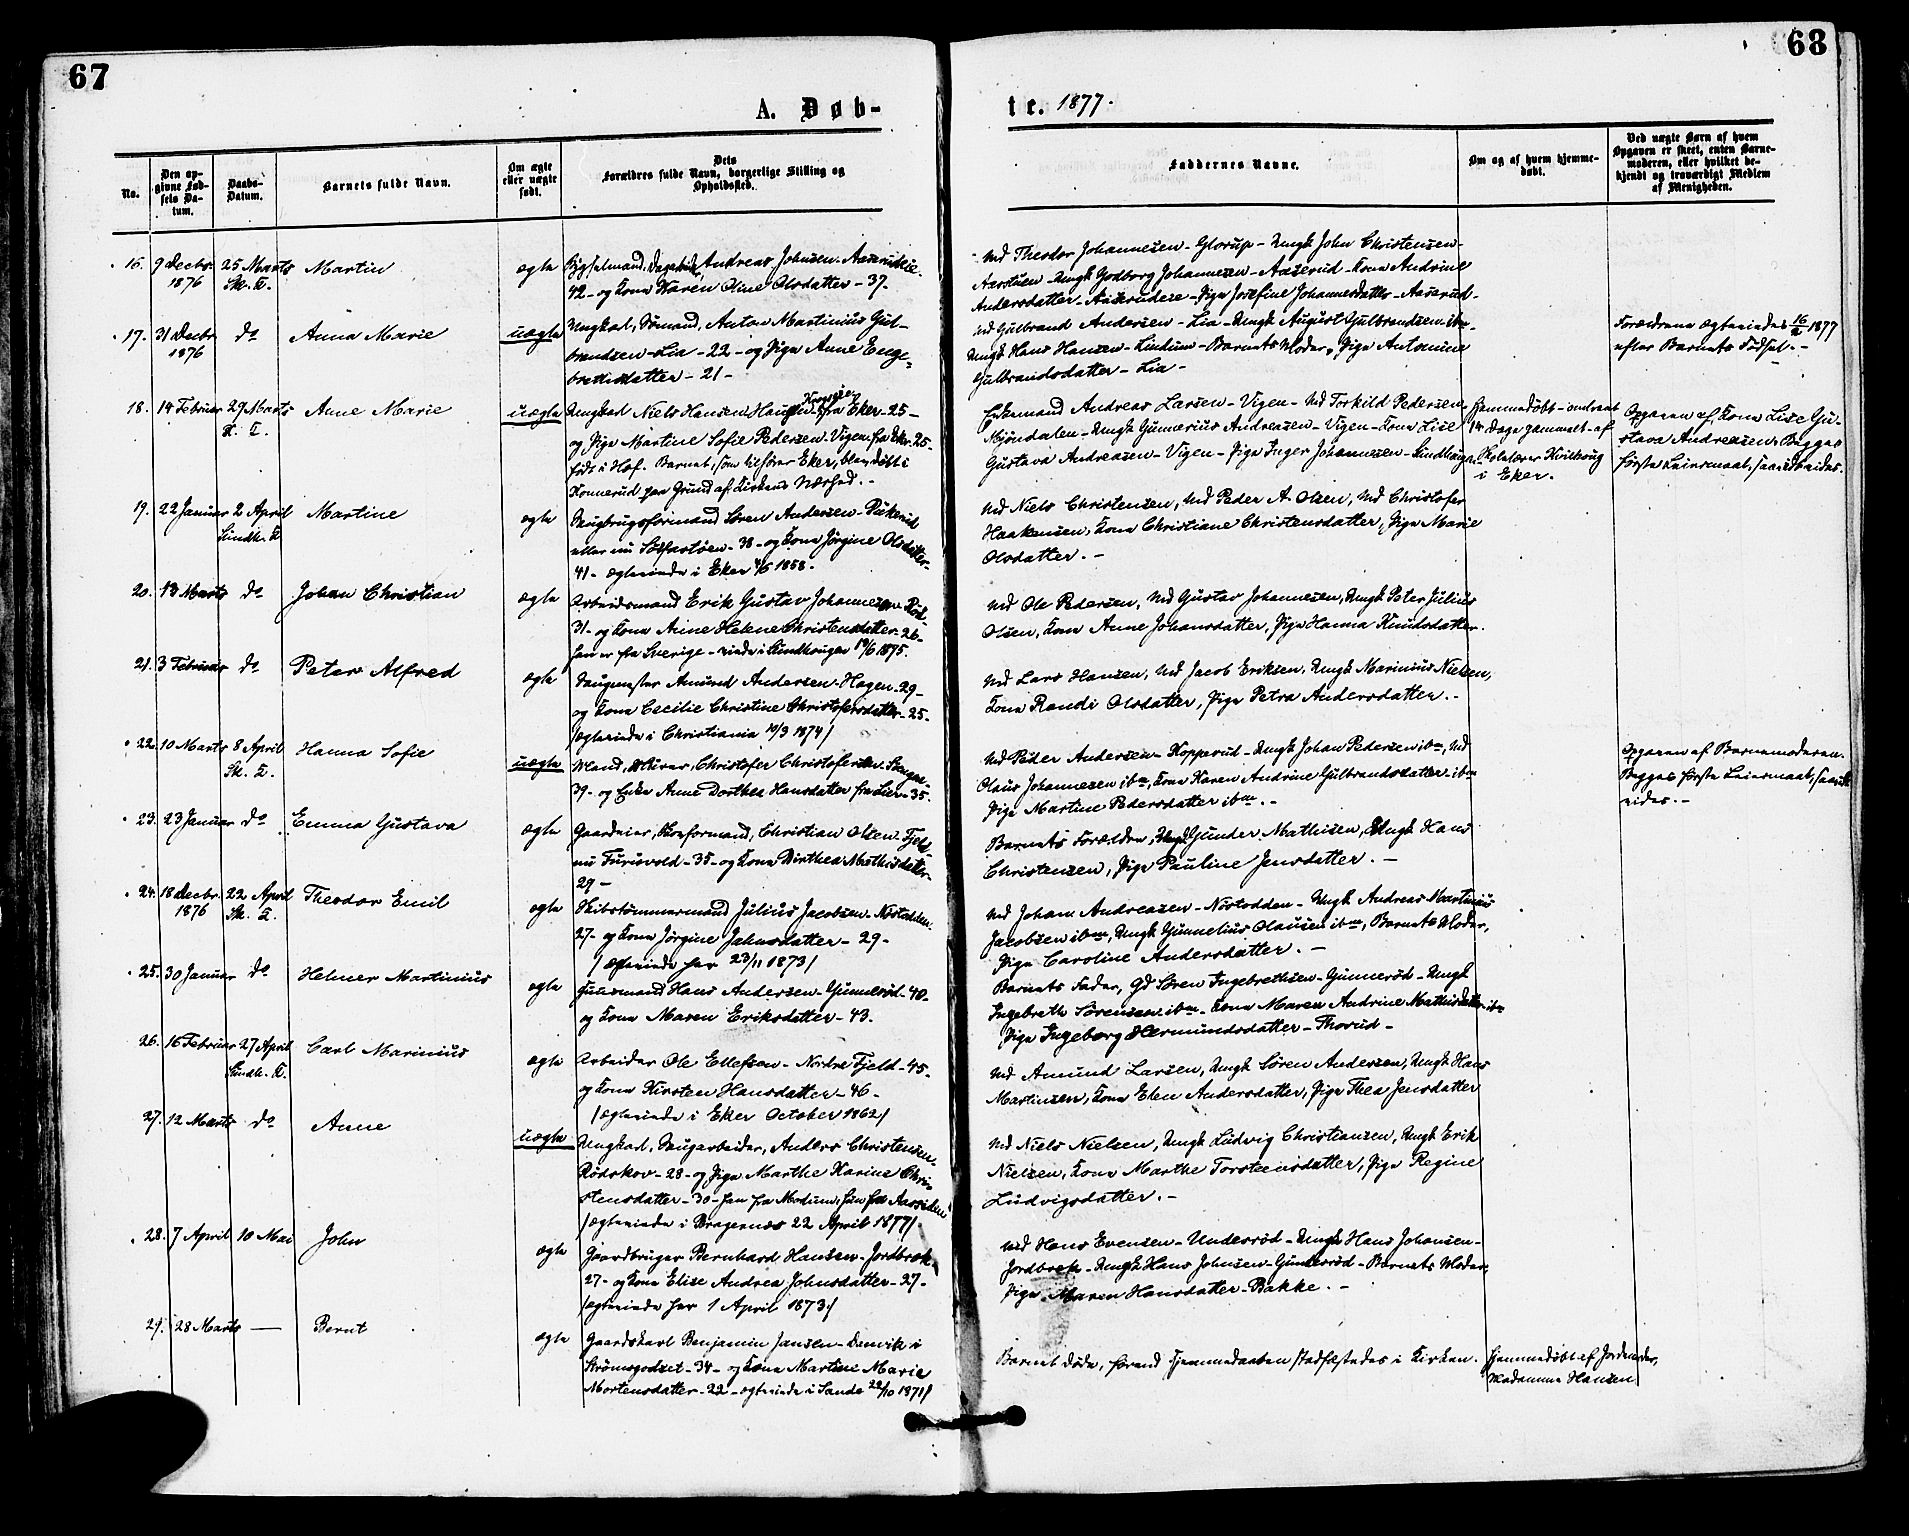 67
68
A. Døb-
te. 1877.
No.
Den op-
givne Fød-
sels Da-
tum.
Daabs-
Datum.
Barnets fulde Navn.
Om ægte
eller uægte
født.
Dets
Forældres fulde Navn, borgerlige Stilling og
Opholdssted.
Faddernes Navne.
Om og af hvem hjemme-
døbt.
Ved uægte Børn af hvem
Opgaven er skeet, enten Barne-
moderen, eller hvilket be-
kjendt og troværdigt Medlem
af Menigheden.
16. 9 Decbr. 25 Marts Martin ægte
1876 Sk. K.
Andreas Johnsen
42 - og Kona Karen Oline Olsdatter - 37.
Md Theodor Johannesen - Glorup - Ungk John Christensen -
Aarstuen - Ungk Godborg Johannesen - Aaserud - Kona Andrine
Andersdatter - - Pige Josefine Johannesdatter - Aaserud -
17. 31 Decbr do Anna Marie uægte
1876
Ungkal, Sømand, Anton Martinius Gul-
brandsen - Lia - 22 - og Pige Anne Enge-
bretsdatter - 21 -
Md Gulbrand Andersen - Lia - Ungk August Gulbrandsen - ibm -
Ungk Hans Hansen - Lindum - Barnets Moder, Pige Antonine
Gulbrandsdatter - Lia -
Forældrene ægteviedes 16/2 1877
efter Barnets Fødsel. -
18. 14 Februar 29 Marts Anne Marie uægte
K. K.
Ungkal Niels Hansen fra Eker - 25 -
og Pige Martine Sofie Pedersen - Vigen fra Eker - 25 -
født i Hof. Barnet, som tilhører Eker, blev døbt i
Konnerud paa Grund af Kirkens Nærhed. -
Enkemand Andreas Larsen - Vigen - Md Torkild Pedersen
Mjøndalen - Ungk Gunnerius Andreasen - Vigen - Kona Lise
Gustava Andreasen - Vigen - Pige Inger Johannesen - Lindhaugen -
Hjemmedøbt - omtrent
14 Dage gammelt - af
Skolelærer
i Eker.
Opgaven af Kona Lise Gu-
stava Andreasen. Begges
første Leiermaal, saavidt vides.
19. 22 Januar 2 April Martine ægte
Lindh. K.
Saugbrugsformand Søren Andersen -
eller nu - 38 - og Kona Jørgine Olsdatter -
41 - ægteviede i Eker 4/6 1858.
Md Niels Christensen, Md Peder A. Olsen, Md Christofer
Haakensen, Kona Christiane Christensdatter, Pige Marie
Olsdatter. -
20. 13 Marts do Johan Christian ægte
Arbeidsmand Erik Gustav Johannesen
31 - og Kona Anne Helene Christensdatter - 26 -
han er fra Sverige - viede i Lindhaugen 19/6 1875.
Md Ole Pedersen, Md Gustav Johannesen, Ungk Peter Julius
Olsen, Kona Anne Johansdatter, Pige Hanna Knudsdatter.
21. 3 Februar do Peter Alfred ægte
Saugmester Amund Andersen - Hagen - 29 -
og Kona Cecilie Christine Christofersdatter - 25.
/ægteviede i Christiania 10/3 1874/
Md Lars Hansen, Md Jacob Eriksen, Ungk Marinius Nielsen,
Kona Randi Olsdatter, Pige Petra Andersdatter. -
22. 10 Marts 8 April Hanna Sofie uægte
Sk. K.
Christofer Christofersen
39 - og Enke Anne Dorthea Hansdatter fra Lier - 35.
Md Peder Andersen - Kopperud - Ungk Johan Pedersen ibm, Md
Olaus Johannesen ibm, Kona Karen Andrine Gulbrandsdatter - ibm
Pige Martine Pedersdatter ibm. -
Opgaven af Barnemoderen.
Begges første Leiermaal, saavidt
vides. -
23. 23 Januar do Emma Gustava ægte
Gaardeier, Christian Olsen - Fjeld
nu - 35 - og Kona Dorthea Mathisdatter -
29 -
Barnets Forældre, Ungk Gunder Mathisen, Ungk Hans
Christensen, Pige Pauline Jensdatter. -
24. 18 Decbr. 22 April Theodor Emil ægte
1876 Sk. K.
Skibstømmermand Julius Jacobsen - Nøstodden
27 - og Kona Jørgine Jahnsdatter - 29 -
/ægteviede her 23/11 1873/
Md Johan Andreasen - Nøstodden - Ungk Andreas Martinius
Jacobsen ibm, Ungk Gunnelius Olausen ibm, Barnets Moder,
Pige Caroline Andersdatter. -
25. 30 Januar do Helmer Martinius ægte
Huusmand Hans Andersen - Gunnerød - 40 -
og Kona Maren Eriksdatter - 43.
Barnets Fader, Gd Søren Ingebrethsen - Gunnerød - Ungk
Ingebreth Sørensen ibm - Kona Maren Andrine Mathisdatter ibm
Pige Ingeborg Hermundsdatter - Thorud -
26. 16 Februar 27 April Carl Marinius ægte
Lindh. K.
Arbeider Ole Ellefsen - Nordre Fjeld - 45 -
og Kona Kirsten Hansdatter - 46 -
/ægteviede i Eker October 1862/
Md Amund Larsen, Ungk Søren Andersen, Ungk Hans
Martinsen, Kona Elen Andersdatter, Pige Thea Jensdatter
27. 12 Marts do Anne uægte
Ungkal, Saugarbeider, Anders Christensen
Rødskov - 28 - og Pige Marthe Karine Chri-
stensdatter - 30 - han fra Modum, hun fra Aassiden
/ægteviede i Bragernæs 22 April 1877/
Md Niels Nielsen, Ungk Ludvig Christiansen, Ungk Erik
Nielsen, Kona Marthe Torsteensdatter, Pige Regine
Ludvigsdatter. -
28. 7 April 10 Mai John ægte
Gaardbruger Bernhard Hansen - Jordbræk
27 - og Kona Elise Andrea Johnsdatter - 27 -
/ægteviede her 1 April 1873/
Md Hans Evensen - Underød - Ungk Hans Johansen -
Jordbræk - Ungk Hans Johnsen - Gunderød - Barnets Moder,
Pige Maren Hansdatter - Bakke. -
29. 28 Marts — Bernt ægte
Gaardskarl Benjamin Jansen - Damvik i
Strømsgodset - 34 - og Kona Martine Marie
Mortensdatter - 22 - ægteviede i Sande 29/10 1871/
Barnet døde, førend Hjemmedaaben stadfæstedes i Kirken.
Hjemmedøbt af Jordemoder,
Madamme Hansen